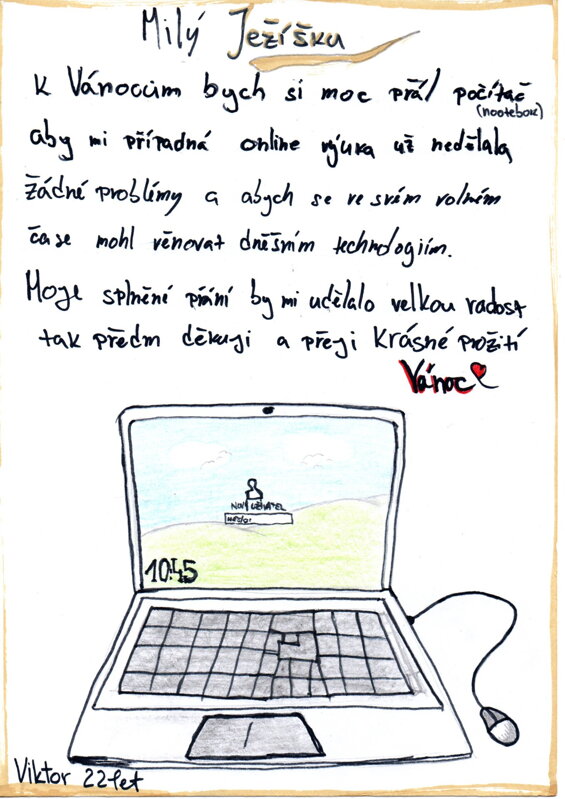 Milý Ježíšku
K Vánocům bych si moc přál počítač
(nootebok)
aby mi případná online výuka už nedělala
žádné problémy a abych se ve svém volném
čase mohl věnovat dněšním technologiím.
Moje splnění přání by mi udělalo velkou radost
tak předm děkuji a přeji Krásné prožití
Vánoc
NOVÝ UŽIVATEL
HESLO:
10:45
Viktor 22 let